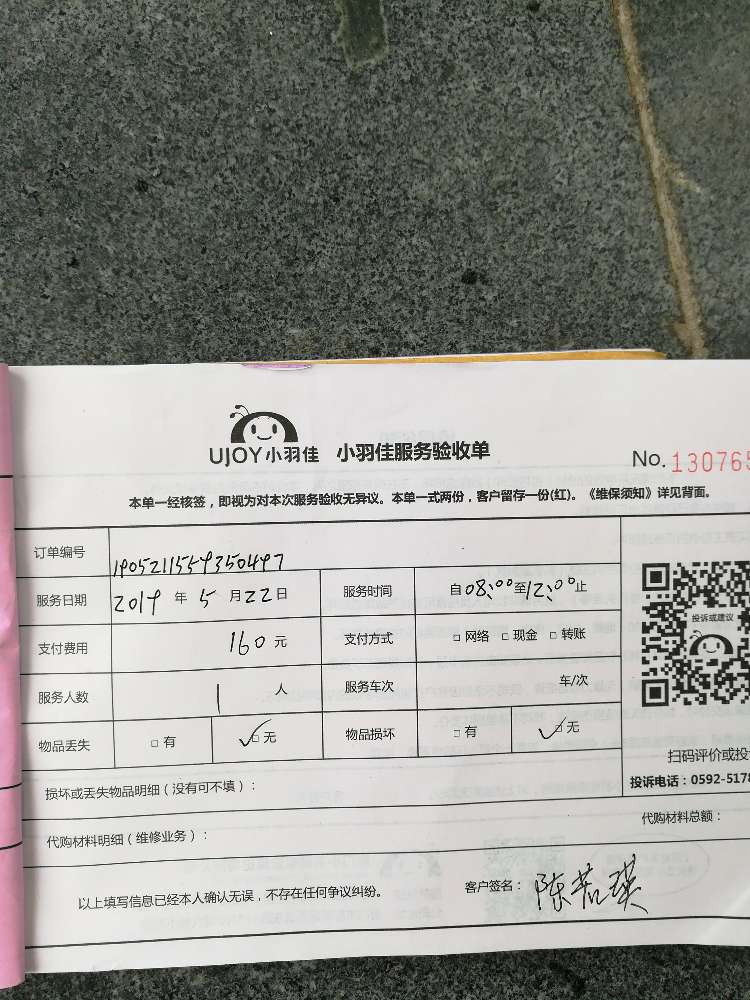 UJOY小羽佳 小羽佳服务验收单
No. 130765
本单一经核签，即视为对本次服务验收无异议。本单一式两份，客户留存一份(红)。《维保须知》详见背面。
订单编号 1905211559350497
服务日期 2019 年 5 月 22 日 服务时间 自08:00至12:00止
投诉或建议
支付费用 160 元 支付方式 □ 网络 □ 现金 □ 转账
服务人数 1 人 服务车次 车/次
物品丢失 □ 有 ✓□ 无 物品损坏 □ 有 ✓□ 无
扫码评价或投
损坏或丢失物品明细（没有可不填）：
投诉电话：0592-5178
代购材料明细（维修业务）：
代购材料总额：
以上填写信息已经本人确认无误，不存在任何争议纠纷。
客户签名：陈若瑛